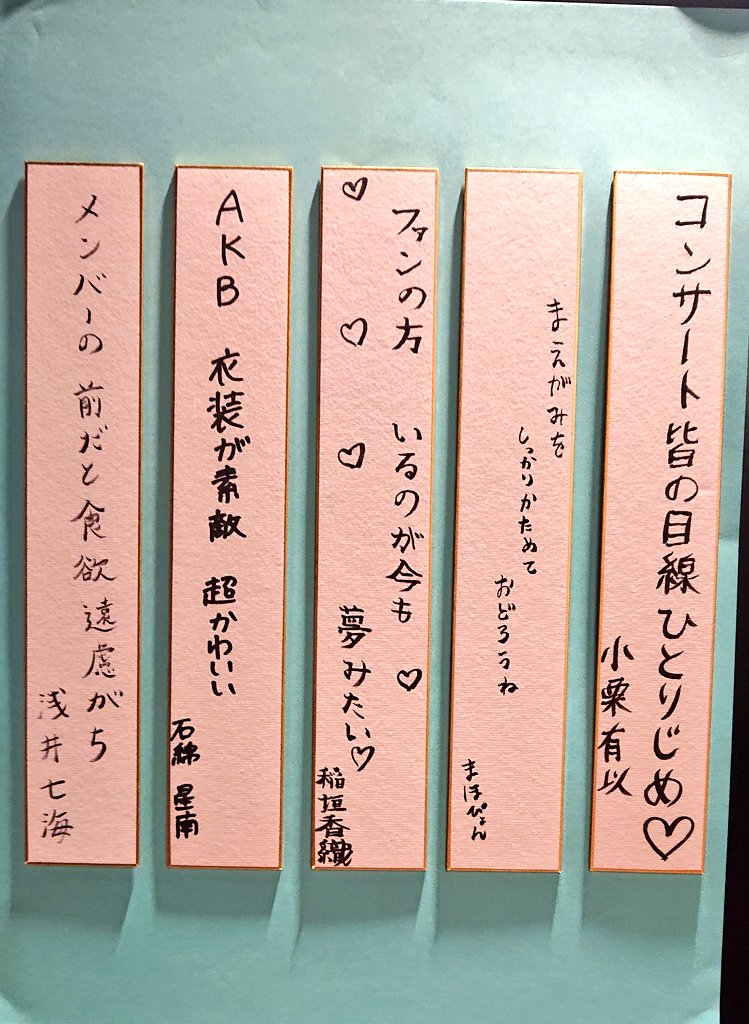 コンサート皆の目線ひとりじめ♡
小栗有以
まえがみを
しっかりかためて
おどろうね
まほぴょん
ファンの方 いるのが今も
夢みたい♡
稲垣香織
AKB 衣装が素敵 超かわいい
石綿 星南
メンバーの前だと食欲遠慮がち
浅井七海